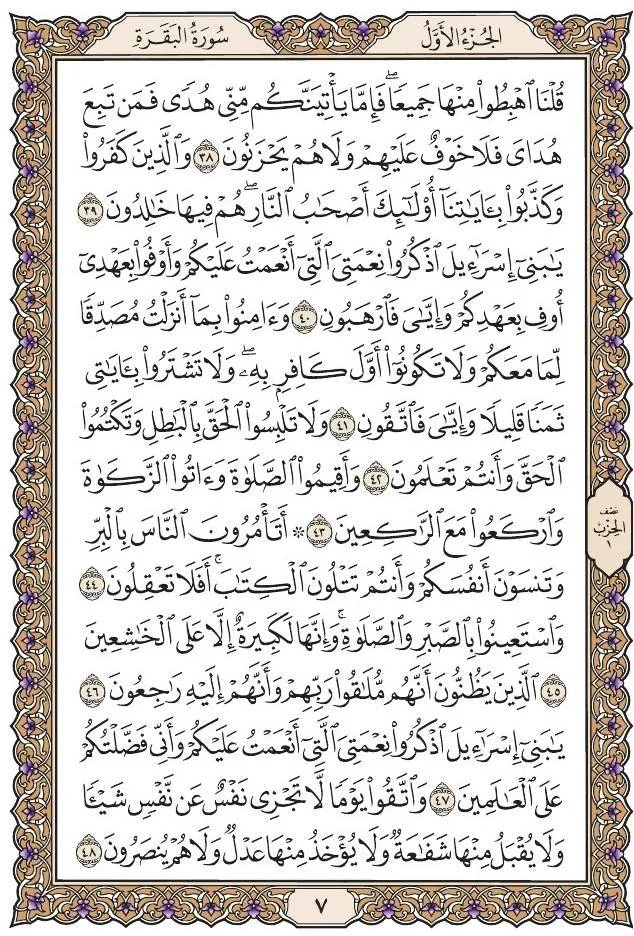 سُورَةُ البَقَرَةِ
الجُزْءُ الأَوَّلُ
قُلْنَا ٱهْبِطُوا۟ مِنْهَا جَمِيعًا ۖ فَإِمَّا يَأْتِيَنَّكُم مِّنِّى هُدًى فَمَن تَبِعَ
هُدَاىَ فَلَا خَوْفٌ عَلَيْهِمْ وَلَا هُمْ يَحْزَنُونَ ٣٨ وَٱلَّذِينَ كَفَرُوا۟
وَكَذَّبُوا۟ بِـَٔايَـٰتِنَآ أُو۟لَـٰٓئِكَ أَصْحَـٰبُ ٱلنَّارِ ۖ هُمْ فِيهَا خَـٰلِدُونَ ٣٩
يَـٰبَنِىٓ إِسْرَٰٓءِيلَ ٱذْكُرُوا۟ نِعْمَتِىَ ٱلَّتِىٓ أَنْعَمْتُ عَلَيْكُمْ وَأَوْفُوا۟ بِعَهْدِىٓ
أُوفِ بِعَهْدِكُمْ وَإِيَّـٰىَ فَٱرْهَبُونِ ٤٠ وَءَامِنُوا۟ بِمَآ أَنزَلْتُ مُصَدِّقًا
لِّمَا مَعَكُمْ وَلَا تَكُونُوٓا۟ أَوَّلَ كَافِرٍۭ بِهِۦ ۖ وَلَا تَشْتَرُوا۟ بِـَٔايَـٰتِى
ثَمَنًا قَلِيلًا وَإِيَّـٰىَ فَٱتَّقُونِ ٤١ وَلَا تَلْبِسُوا۟ ٱلْحَقَّ بِٱلْبَـٰطِلِ وَتَكْتُمُوا۟
ٱلْحَقَّ وَأَنتُمْ تَعْلَمُونَ ٤٢ وَأَقِيمُوا۟ ٱلصَّلَوٰةَ وَءَاتُوا۟ ٱلزَّكَوٰةَ
وَٱرْكَعُوا۟ مَعَ ٱلرَّٰكِعِينَ ٤٣ ۞ أَتَأْمُرُونَ ٱلنَّاسَ بِٱلْبِرِّ
وَتَنسَوْنَ أَنفُسَكُمْ وَأَنتُمْ تَتْلُونَ ٱلْكِتَـٰبَ ۚ أَفَلَا تَعْقِلُونَ ٤٤
وَٱسْتَعِينُوا۟ بِٱلصَّبْرِ وَٱلصَّلَوٰةِ ۚ وَإِنَّهَا لَكَبِيرَةٌ إِلَّا عَلَى ٱلْخَـٰشِعِينَ
٤٥ ٱلَّذِينَ يَظُنُّونَ أَنَّهُم مُّلَـٰقُوا۟ رَبِّهِمْ وَأَنَّهُمْ إِلَيْهِ رَٰجِعُونَ ٤٦
يَـٰبَنِىٓ إِسْرَٰٓءِيلَ ٱذْكُرُوا۟ نِعْمَتِىَ ٱلَّتِىٓ أَنْعَمْتُ عَلَيْكُمْ وَأَنِّى فَضَّلْتُكُمْ
عَلَى ٱلْعَـٰلَمِينَ ٤٧ وَٱتَّقُوا۟ يَوْمًا لَّا تَجْزِى نَفْسٌ عَن نَّفْسٍ شَيْـًٔا
وَلَا يُقْبَلُ مِنْهَا شَفَـٰعَةٌ وَلَا يُؤْخَذُ مِنْهَا عَدْلٌ وَلَا هُمْ يُنصَرُونَ ٤٨
نِصْف
الحِزْب
١
٧